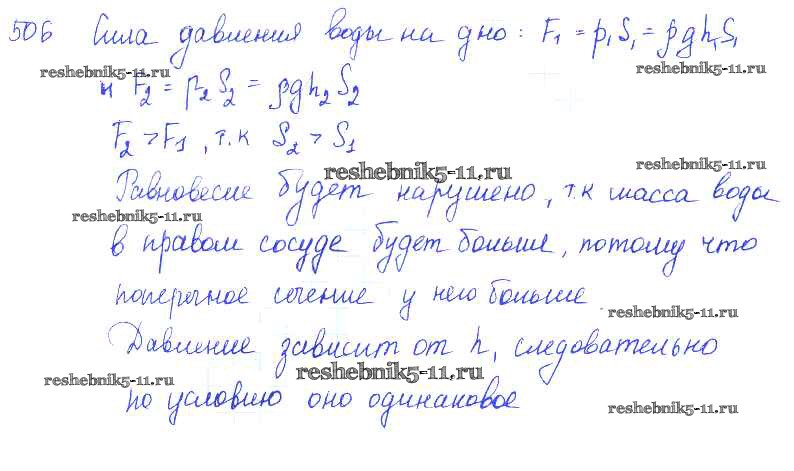 506 Сила давления воды на дно: F₁ = p₁S₁ = ρgh₁S₁
reshebnik5-11.ru reshebnik5-11.ru
и F₂ = p₂S₂ = ρgh₂S₂
F₂ > F₁, т.к S₂ > S₁
reshebnik5-11.ru reshebnik5-11.ru
Равновесие будет нарушено, т.к масса воды
reshebnik5-11.ru
в правом сосуде будет больше, потому что
поперечное сечение у него больше
reshebnik5-11.ru
Давление зависит от h, следовательно
reshebnik5-11.ru reshebnik5-11.ru
по условию оно одинаковое
reshebnik5-11.ru